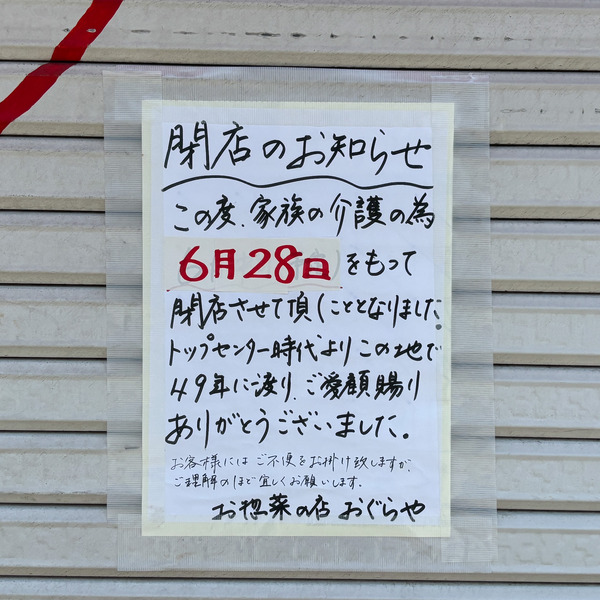 閉店のお知らせ
この度、家族の介護の為
6月28日をもって
閉店させて頂くこととなりました。
トップセンター時代よりこの地で
49年に渡り、ご愛顧賜り
ありがとうございました。
お客様にはご不便をお掛け致しますが、
ご理解のほど宜しくお願いします。
お惣菜の店 おぐらや